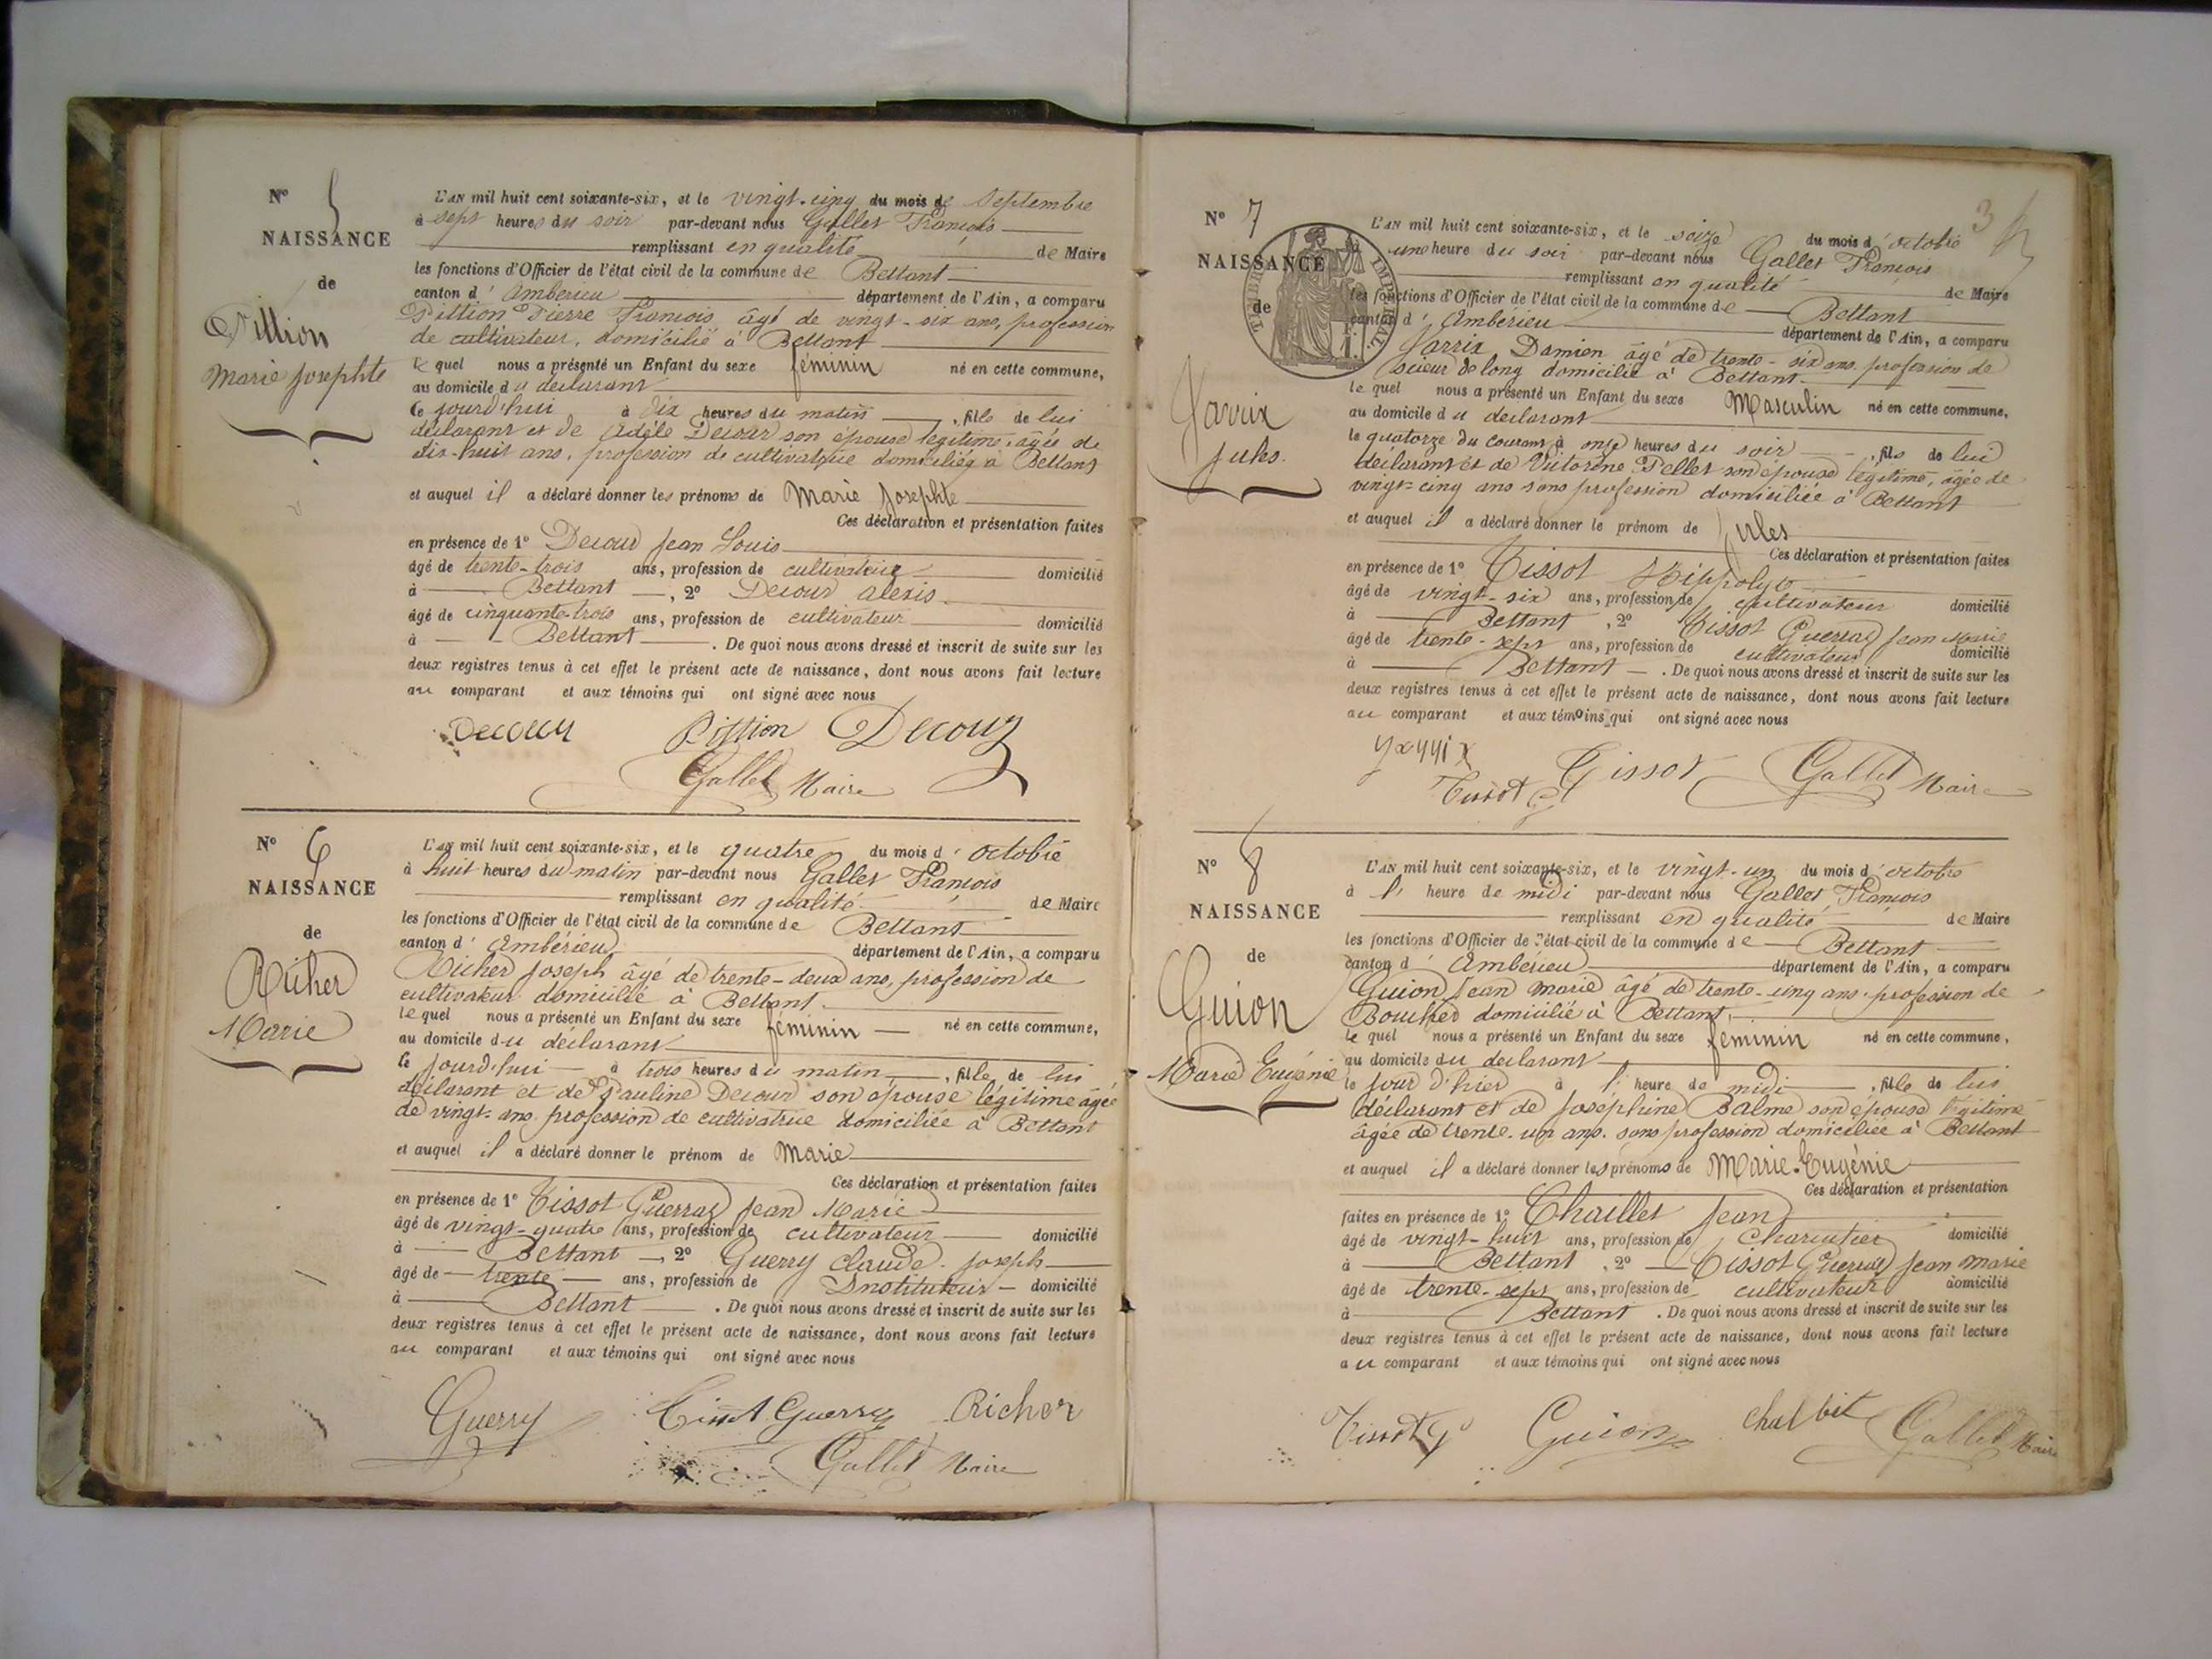 N° 5
NAISSANCE
de
Pittion
Marie Josephte
L'AN mil huit cent soixante-six, et le vingt-cinq du mois de Septembre
à sept heures du soir par-devant nous Gallet François
remplissant en qualité de Maire
les fonctions d'Officier de l'état civil de la commune de Bettant
canton d' Ambérieu département de l'Ain, a comparu
Pittion Pierre François âgé de vingt-six ans, profession
de cultivateur, domicilié à Bettant
le quel nous a présenté un Enfant du sexe féminin né en cette commune,
au domicile du déclarant
ce jourd'hui à dix heures du matin, fille de lui
déclarant et de Adèle Decour son épouse légitime, âgée de
dix-huit ans, profession de cultivatrice domiciliée à Bettant
et auquel il a déclaré donner les prénoms de Marie Josephte
Ces déclaration et présentation faites
en présence de 1° Decour Jean Louis
âgé de trente-trois ans, profession de cultivateur domicilié
à Bettant, 2° Decour Alexis
âgé de cinquante-trois ans, profession de cultivateur domicilié
à Bettant. De quoi nous avons dressé et inscrit de suite sur les
deux registres tenus à cet effet le présent acte de naissance, dont nous avons fait lecture
au comparant et aux témoins qui ont signé avec nous
Decour Pittion Decour
Gallet Maire
N° 6
NAISSANCE
de
Richer
Marie
L'AN mil huit cent soixante-six, et le quatre du mois d'octobre
à huit heures du matin par-devant nous Gallet François
remplissant en qualité de Maire
les fonctions d'Officier de l'état civil de la commune de Bettant
canton d' Ambérieu département de l'Ain, a comparu
Richer Joseph âgé de trente-deux ans, profession de
cultivateur domicilié à Bettant
le quel nous a présenté un Enfant du sexe féminin né en cette commune,
au domicile du déclarant
ce jourd'hui à trois heures du matin, fille de lui
déclarant et de Pauline Decour son épouse légitime âgée
de vingt ans profession de cultivatrice domiciliée à Bettant
et auquel il a déclaré donner le prénom de Marie
Ces déclaration et présentation faites
en présence de 1° Tissot Guerraz Jean Marie
âgé de vingt-quatre ans, profession de cultivateur domicilié
à Bettant, 2° Guerry Claude Joseph
âgé de trente ans, profession de Instituteur domicilié
à Bettant. De quoi nous avons dressé et inscrit de suite sur les
deux registres tenus à cet effet le présent acte de naissance, dont nous avons fait lecture
au comparant et aux témoins qui ont signé avec nous
Guerry Tissot Guerraz Richer
Gallet Maire
3
N° 7
NAISSANCE
de
TIMBRE IMPÉRIAL
Jarrix
Jules
L'AN mil huit cent soixante-six, et le seize du mois d'octobre
à une heure du soir par-devant nous Gallet François
remplissant en qualité de Maire
les fonctions d'Officier de l'état civil de la commune de Bettant
canton d' Ambérieu département de l'Ain, a comparu
Jarrix Damien âgé de trente-six ans, profession de
scieur de long domicilié à Bettant
le quel nous a présenté un Enfant du sexe Masculin né en cette commune,
au domicile du déclarant
le quatorze du courant à onze heures du soir, fils de lui
déclarant et de Victorine Pellet son épouse légitime, âgée de
vingt-cinq ans sans profession domiciliée à Bettant
et auquel il a déclaré donner le prénom de Jules
Ces déclaration et présentation faites
en présence de 1° Tissot Hippolyte
âgé de vingt-six ans, profession de cultivateur domicilié
à Bettant, 2° Tissot Guerraz Jean Marie
âgé de trente-sept ans, profession de cultivateur domicilié
à Bettant. De quoi nous avons dressé et inscrit de suite sur les
deux registres tenus à cet effet le présent acte de naissance, dont nous avons fait lecture
au comparant et aux témoins qui ont signé avec nous
Tissot Gallet Maire
Tissot G
N° 8
NAISSANCE
de
Guion
Marie Eugénie
L'AN mil huit cent soixante-six, et le vingt-un du mois d'octobre
à l' heure de midi par-devant nous Gallet François
remplissant en qualité de Maire
les fonctions d'Officier de l'état civil de la commune de Bettant
canton d' Ambérieu département de l'Ain, a comparu
Guion Jean Marie âgé de trente-cinq ans profession de
Boucher domicilié à Bettant
le quel nous a présenté un Enfant du sexe féminin né en cette commune,
au domicile du déclarant
le jour d'hier à l' heure de midi, fille de lui
déclarant et de Joséphine Balme son épouse légitime
âgée de trente-un ans sans profession domiciliée à Bettant
et auquel il a déclaré donner les prénoms de Marie-Eugénie
Ces déclaration et présentation
faites en présence de 1° Chaillet Jean
âgé de vingt-huit ans, profession de Charcutier domicilié
à Bettant, 2° Tissot Guerraz Jean Marie
âgé de trente-sept ans, profession de cultivateur domicilié
à Bettant. De quoi nous avons dressé et inscrit de suite sur les
deux registres tenus à cet effet le présent acte de naissance, dont nous avons fait lecture
au comparant et aux témoins qui ont signé avec nous
Tissot G Guion Gallet Maire